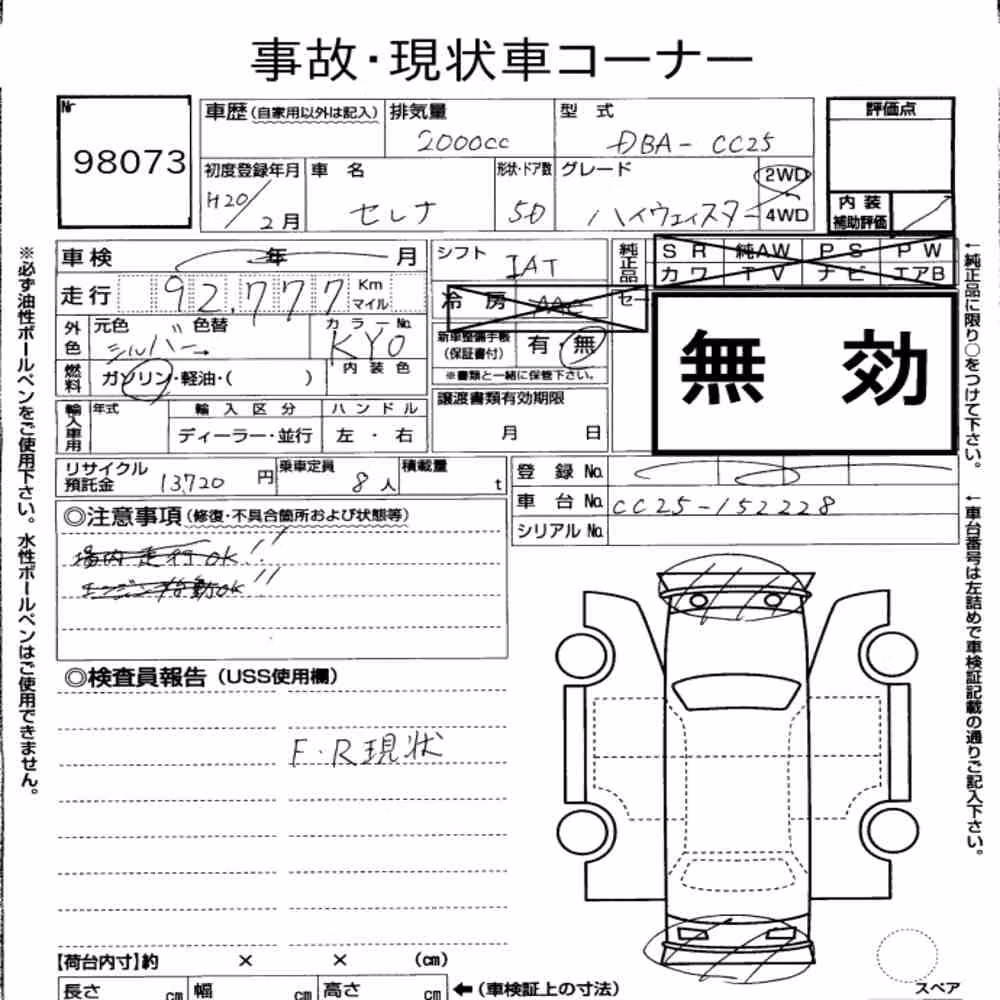 事故・現状車コーナー
Nr
98073
車歴(自家用以外は記入)
排気量
2000cc
型式
DBA-CC25
評価点
初度登録年月
H20/2月
車名
セレナ
形状・ドア数
5D
グレード
ハイウェイスター
2WD
4WD
内装
補助評価
車検 年 月
シフト
IAT
純正品
SR 純AW PS PW
カワ TV ナビ エアB
走行 92,777 Km マイル
冷房
セー
外色
元色 〃 色替
シルバー→
カラーNo.
KY0
新車整備手帳
(保証書付)
有・無
※書類と一緒に保管下さい。
無効
燃料
ガソリン・軽油・( )
内装色
輸入車用
年式
輸入区分
ハンドル
ディーラー・並行
左・右
譲渡書類有効期限
月 日
リサイクル預託金 13,720 円
乗車定員 8人
積載量 t
登録No.
車台No. CC25-152228
シリアルNo.
◎注意事項(修復・不具合箇所および状態等)
場内走行OK!!
エンジン始動OK!!
◎検査員報告(USS使用欄)
F・R現状
【荷台内寸】約 × × (cm)
長さ cm 幅 cm 高さ cm ←(車検証上の寸法)
スペア
※必ず油性ボールペンをご使用下さい。水性ボールペンはご使用できません。
←純正品に限り○をつけて下さい。
←車台番号は左詰めで車検証記載の通りご記入下さい。